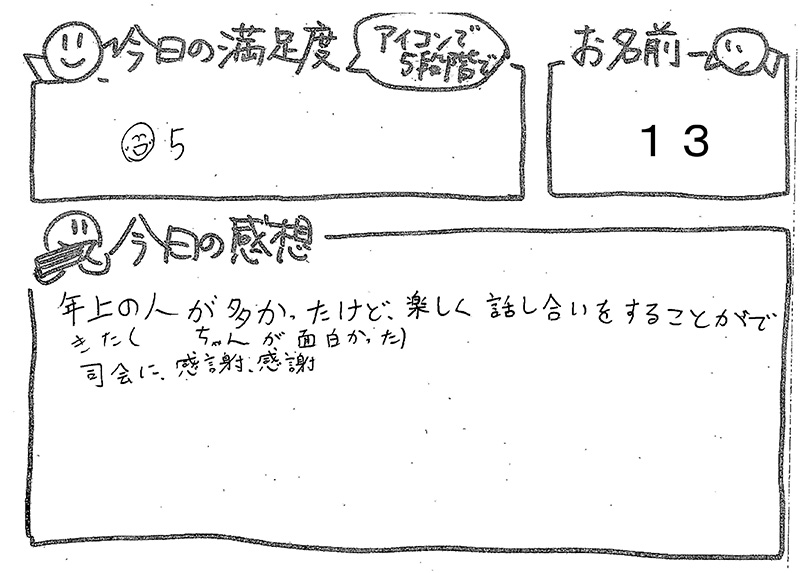 今日の満足度
アイコンで
5段階で
お名前
5
13
今日の感想
年上の人が多かったけど、楽しく話し合いをすることがで
きた(　　ちゃんが面白かった)
司会に、感謝、感謝